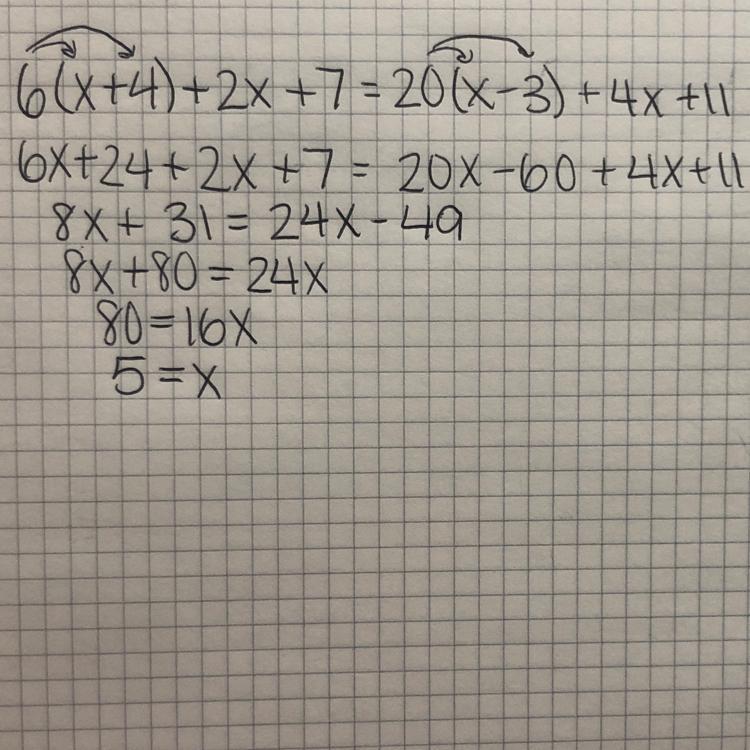 6(x+4)+2x+7=20(x-3)+4x+11
6x+24+2x+7=20x-60+4x+11
8x+31=24x-49
8x+80=24x
80=16x
5=x